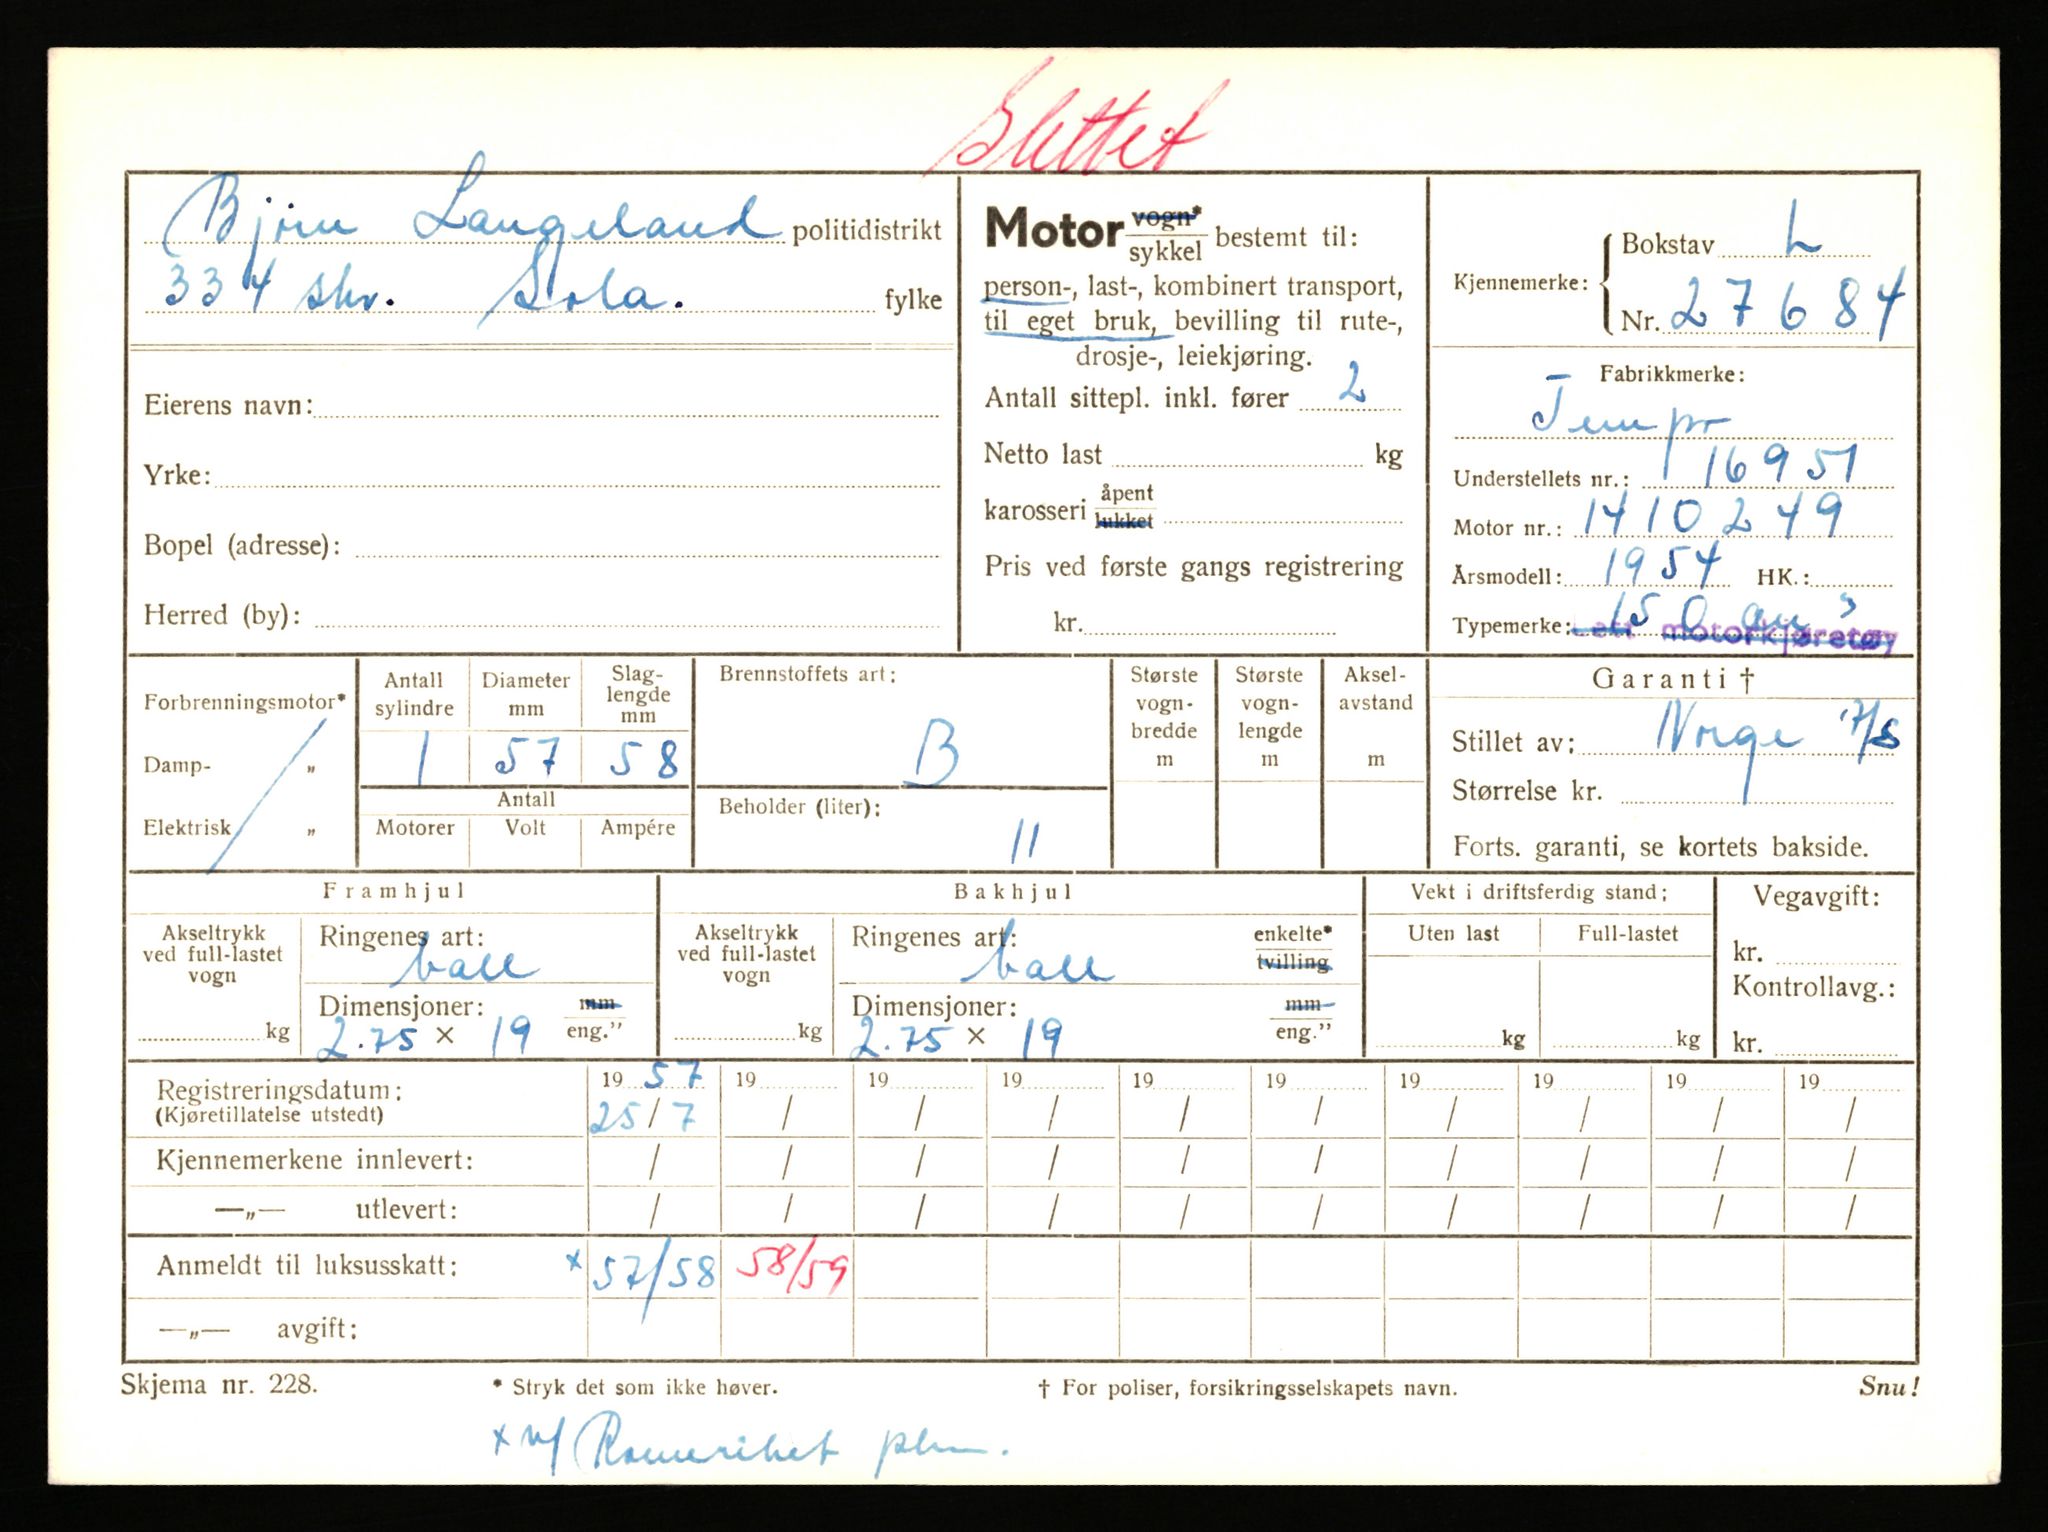 Slettet
Bjørn Langeland politidistrikt
334 skv. Sola. fylke
Eierens navn:
Yrke:
Bopel (adresse):
Herred (by):
Motor vogn* / sykkel bestemt til:
person-, last-, kombinert transport,
til eget bruk, bevilling til rute-,
drosje-, leiekjøring.
Antall sittepl. inkl. fører 2
Netto last kg
karosseri åpent / lukket
Pris ved første gangs registrering
kr.
Kjennemerke: Bokstav L
Nr. 27684
Fabrikkmerke:
Tempo
Understellets nr.: 116951
Motor nr.: 1410249
Årsmodell: 1954 HK.:
Typemerke: 150 cm³
Lett motorkjøretøy
Forbrenningsmotor*
Damp- „
Elektrisk „
Antall sylindre 1
Diameter mm 57
Slag-lengde mm 58
Antall
Motorer Volt Ampére
Brennstoffets art:
B
Beholder (liter):
11
Største vogn-bredde m
Største vogn-lengde m
Aksel-avstand m
Garanti †
Stillet av: Norge 17/8
Størrelse kr.
Forts. garanti, se kortets bakside.
Framhjul
Akseltrykk ved full-lastet vogn
kg
Ringenes art:
ball
Dimensjoner: mm
2.75 × 19 eng.”
Bakhjul
Akseltrykk ved full-lastet vogn
kg
Ringenes art: enkelte* / tvilling
ball
Dimensjoner: mm
2.75 × 19 eng.”
Vekt i driftsferdig stand:
Uten last Full-lastet
kg kg
Vegavgift:
kr.
Kontrollavg.:
kr.
Registreringsdatum: 19 57 19 19 19 19 19 19 19 19 19
(Kjøretillatelse utstedt) 25/7 / / / / / / / / /
Kjennemerkene innlevert: / / / / / / / / / /
—„— utlevert: / / / / / / / / / /
Anmeldt til luksusskatt: × 57/58 58/59
—„— avgift:
Skjema nr. 228. * Stryk det som ikke høver. † For poliser, forsikringsselskapets navn. Snu!
× v/ Romerihet pkm.